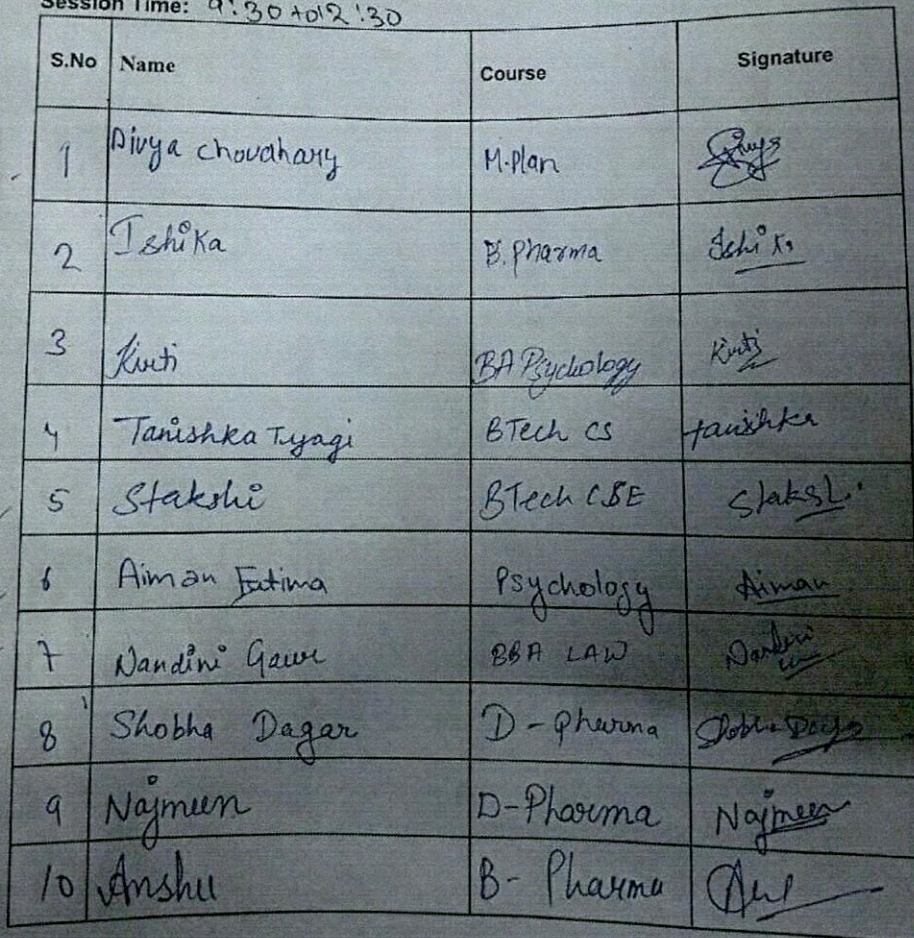 Session Time: 9:30 to 12:30
S.No Name Course Signature
1 Divya choudhary M.Plan
2 Ishika B.Pharma Ishika
3 Kirti BA Psychology Kirti
4 Tanishka Tyagi BTech CS tanishka
5 Stakshi BTech CSE Stakshi
6 Aiman Fatima Psychology Aiman
7 Nandini Gaur BBA LAW Nandini
8 Shobha Dagar D-Pharma Shobha Dagar
9 Najmeen D-Pharma Najmeen
10 Anshu B-Pharma